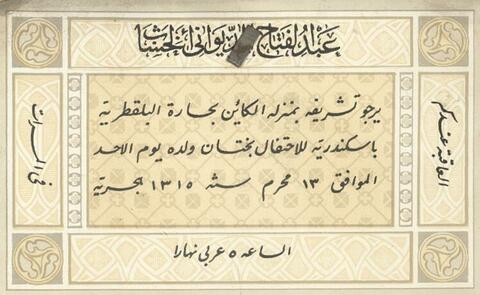 عبد الفتاح الديوانى الخشاب
يرجو تشريفه بمنزله الكائن بحارة البلقطرية
باسكندرية للاحتفال بختان ولده يوم الاحد
الموافق ١٣ محرم سنة ١٣١٥ هجرية
العاقبة عندكم
فى المسرات
الساعه ٥ عربى نهارا